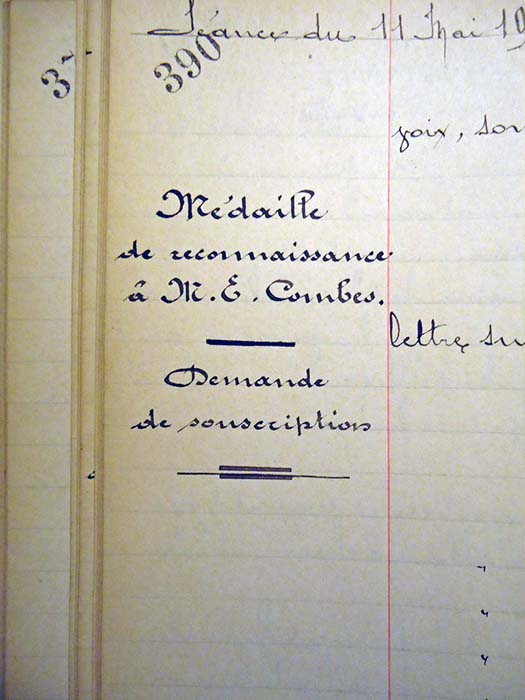 Séance du 11 Mai 19
3
390
voix, son
Médaille
de reconnaissance
à M. E. Combes.
lettre su
Demande
de souscription